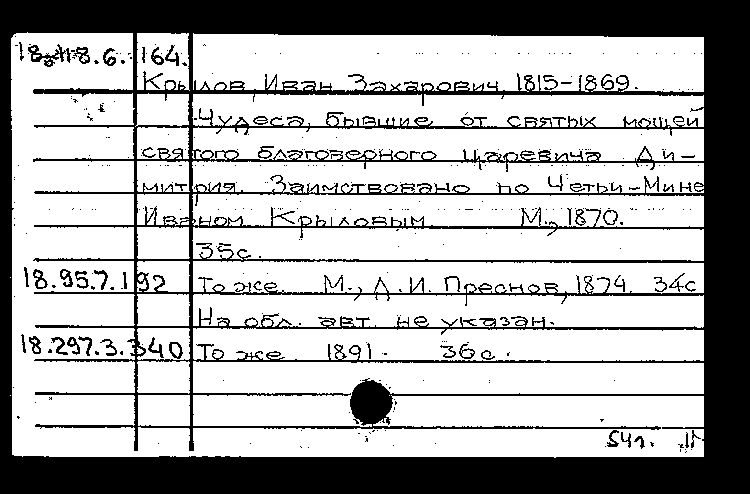 18. 118.6. 164.
Крылов, Иван Захарович, 1815-1869.
Чудеса, бывшие от святых мощей
святого благоверного царевича Ди-
митрия. Заимствовано по Четьи-Мине
Иваном Крыловым М., 1870.
35с.
18.95.7.192 То же. М., Д.И. Преснов, 1874. 34с
На обл. авт. не указан.
18.297.3.340 То же 1891. 36с.
54г.